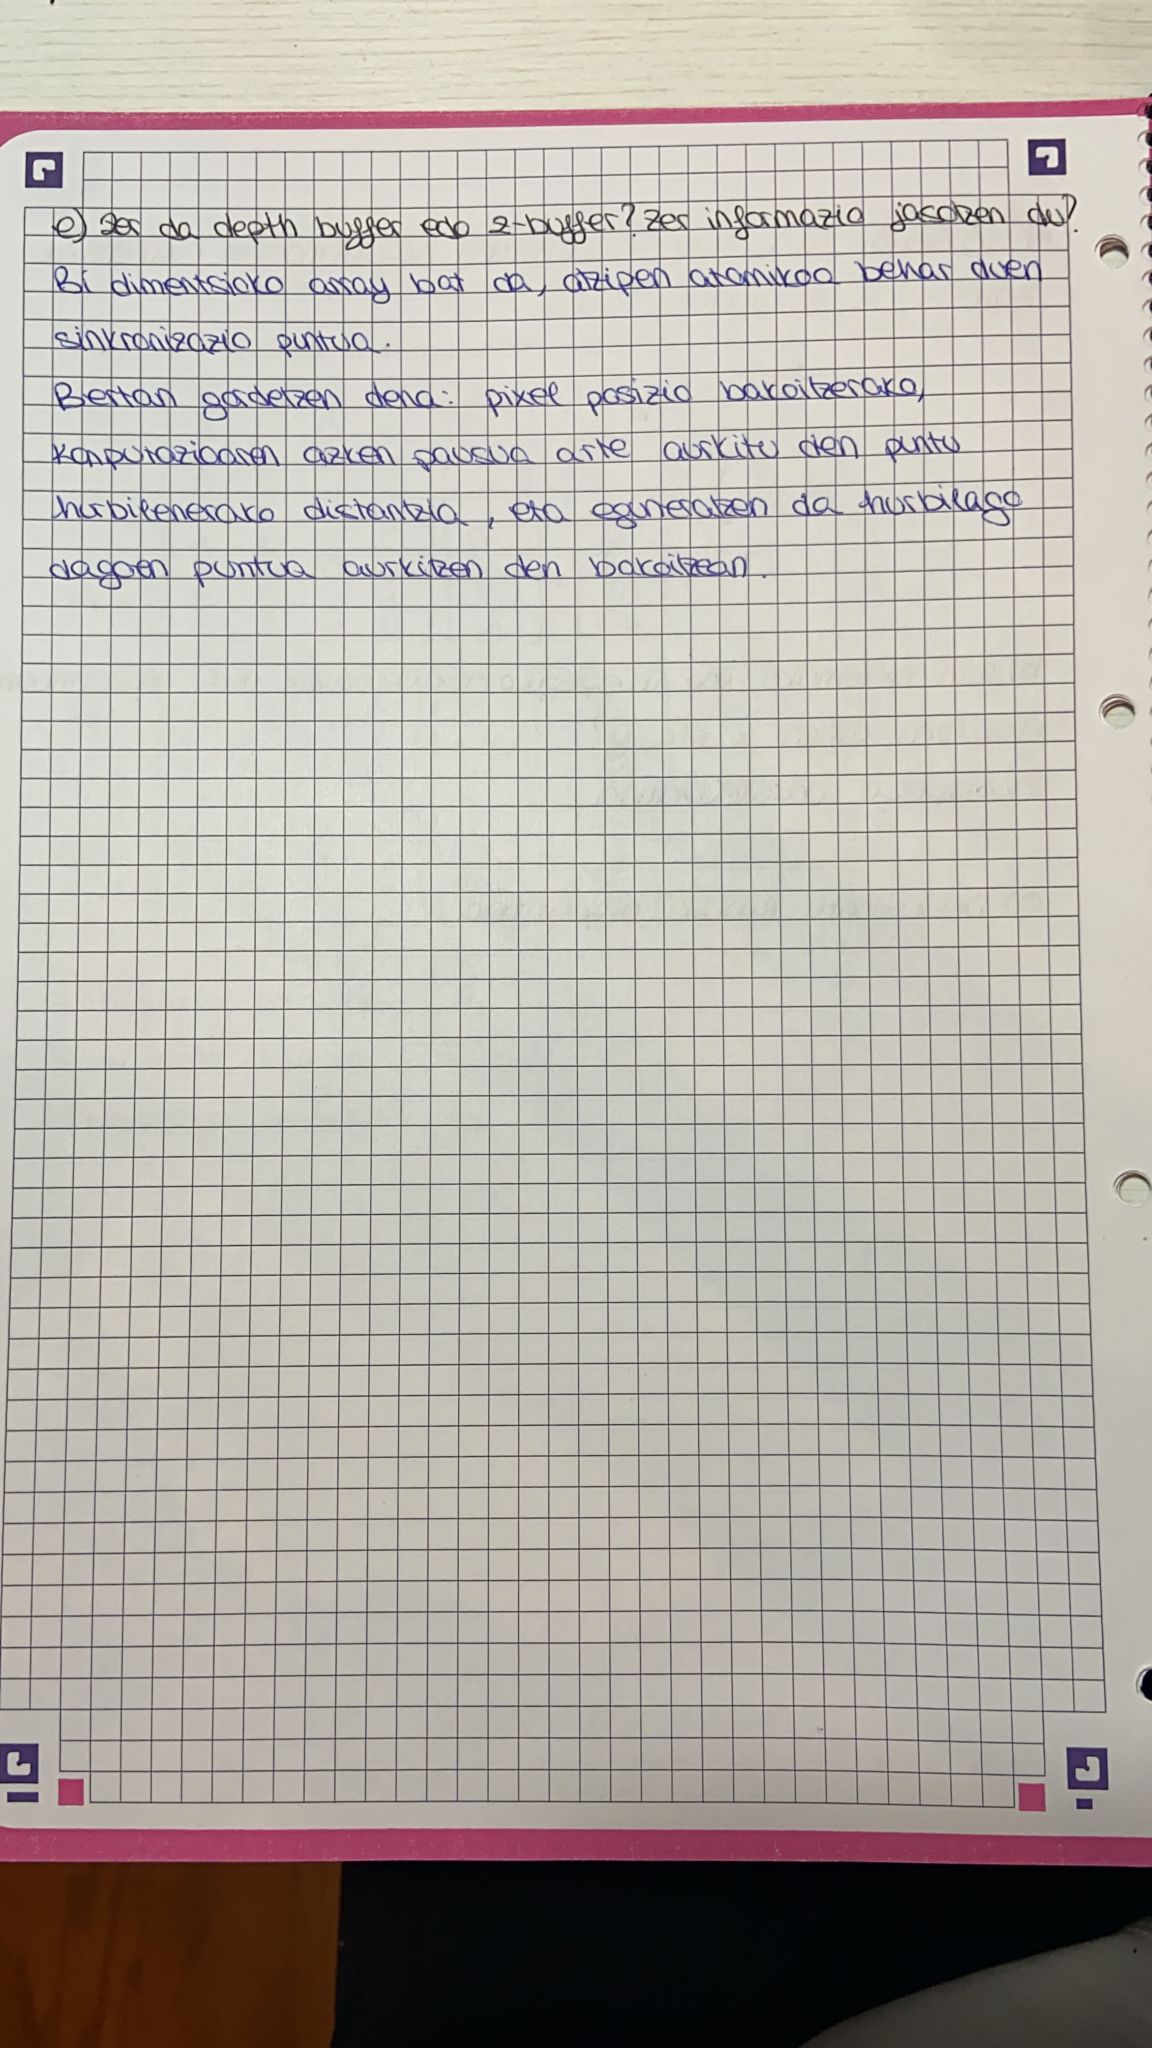 e) Zer da depth buffer edo z-buffer? Zer informazio jasotzen du?
Bi dimentsioko array bat da, atzipen atomikoa behar duen
sinkronizazio puntua.
Bertan gordetzen dena: pixel posizio bakoitzerako,
konputazioaren azken pausua arte aurkitu den puntu
hurbilenerako distantzia, eta eguneratzen da hurbilago
dagoen puntua aurkitzen den bakoitzean.